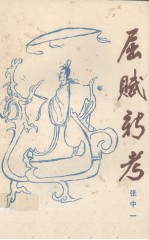 屈赋新考
张中一